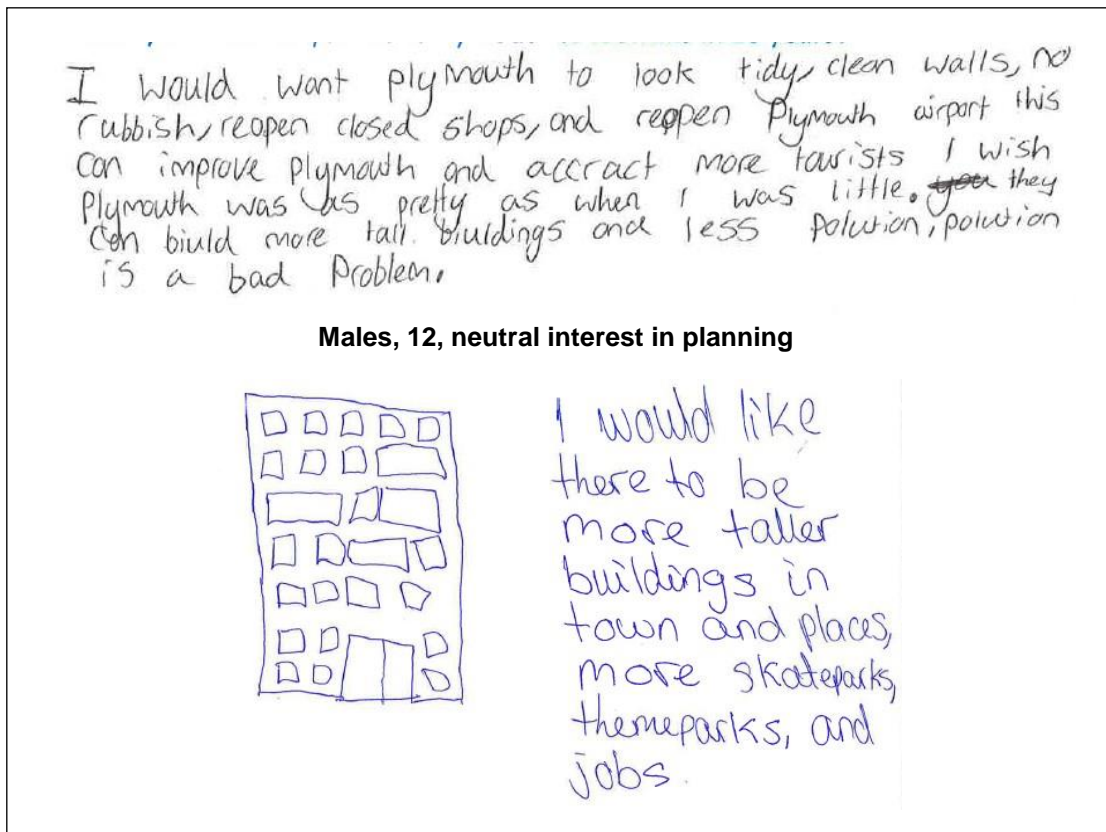 I would want plymouth to look tidy, clean walls, no
rubbish, reopen closed shops, and reopen Plymouth airport this
can improve plymouth and accract more tourists I wish
Plymouth was as pretty as when I was little. you they
can biuld more tall biuldings and less polution, polution
is a bad Problem.
Males, 12, neutral interest in planning
I would like
there to be
more taller
buildings in
town and places,
more skateparks,
themeparks, and
jobs.